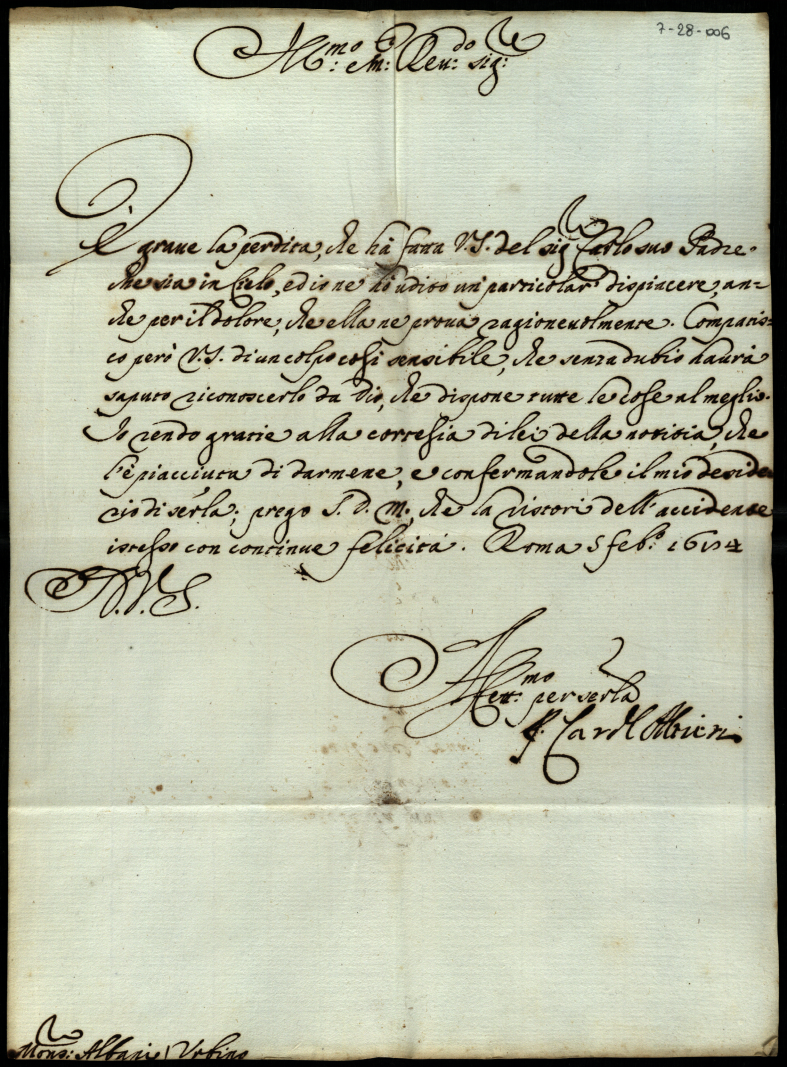 7-28-006
Ill.mo e M. Reu.do sig.re
È graue la perdita, che hà fatta V.S. del sig.re Carlo suo Padre
che sia in Cielo, ed io ne hò udito un particolar dispiacere, an=
che per il dolore, che ella ne proua ragioneuolmente. Compatis=
co però V.S. di un colpo così sensibile, che senza dubio haurà
saputo riconoscerlo da Dio, che dispone tutte le cose al meglio.
Io rendo gratie alla cortesia di lei della notitia, che
l'è piacciuta di darmene, e confermandole il mio deside=
rio di serla, prego S. D. M., che la ristori dell'accidente
istesso con continue felicità. Roma 5 feb.o
D.V.S.
Aff.mo per serla
P. Card.l Altieri
Mons.re Albani / Vrbino